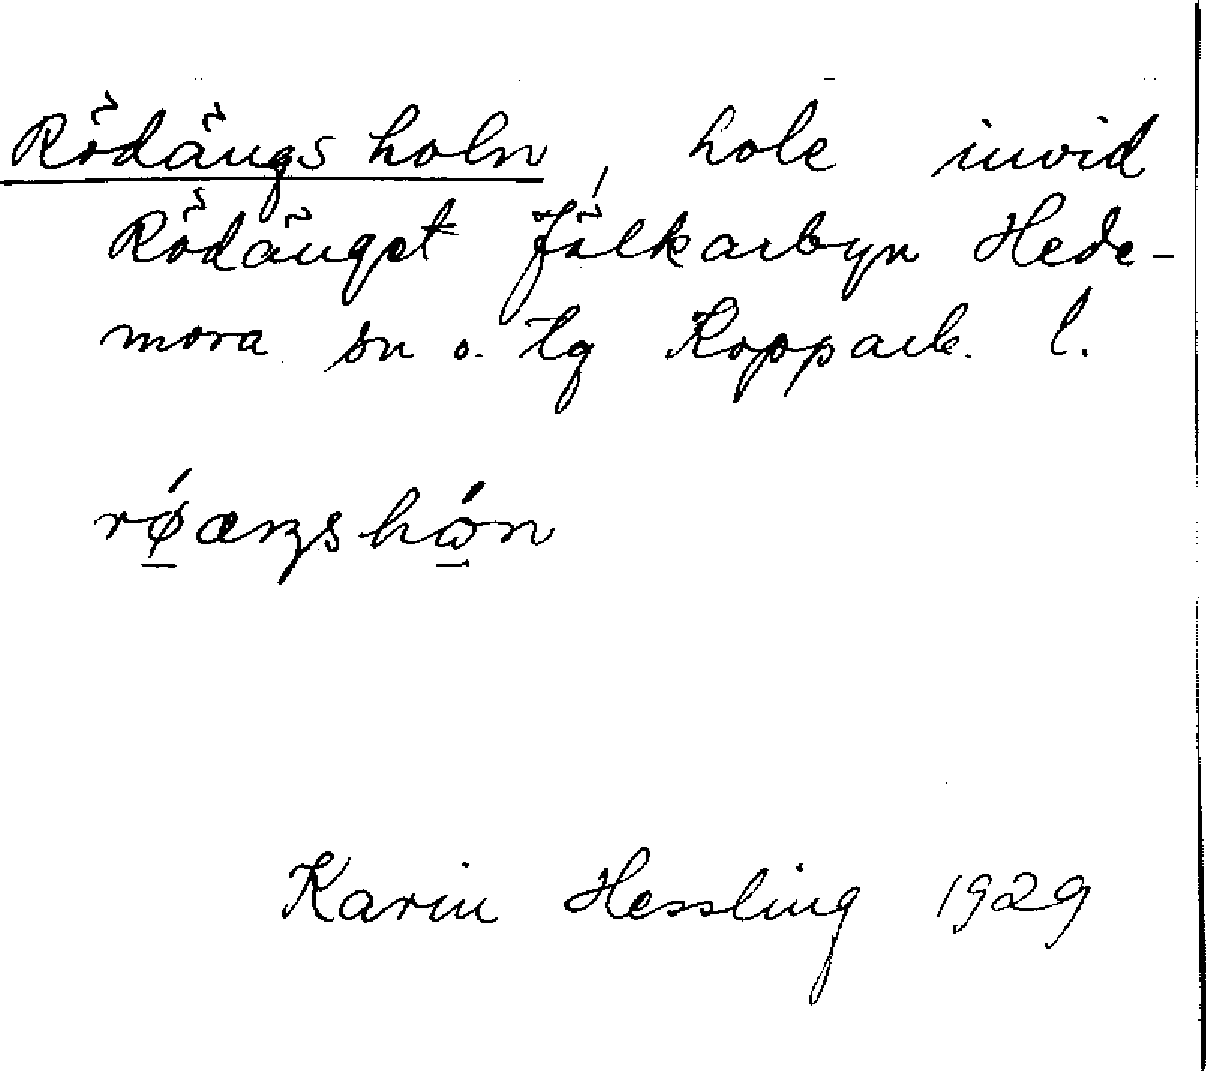 Rödängsholn, hole invid
Rödänget Fälkarbyn Hede-
mora sn o. tg Kopparb. l.
Karin Hessling 1929